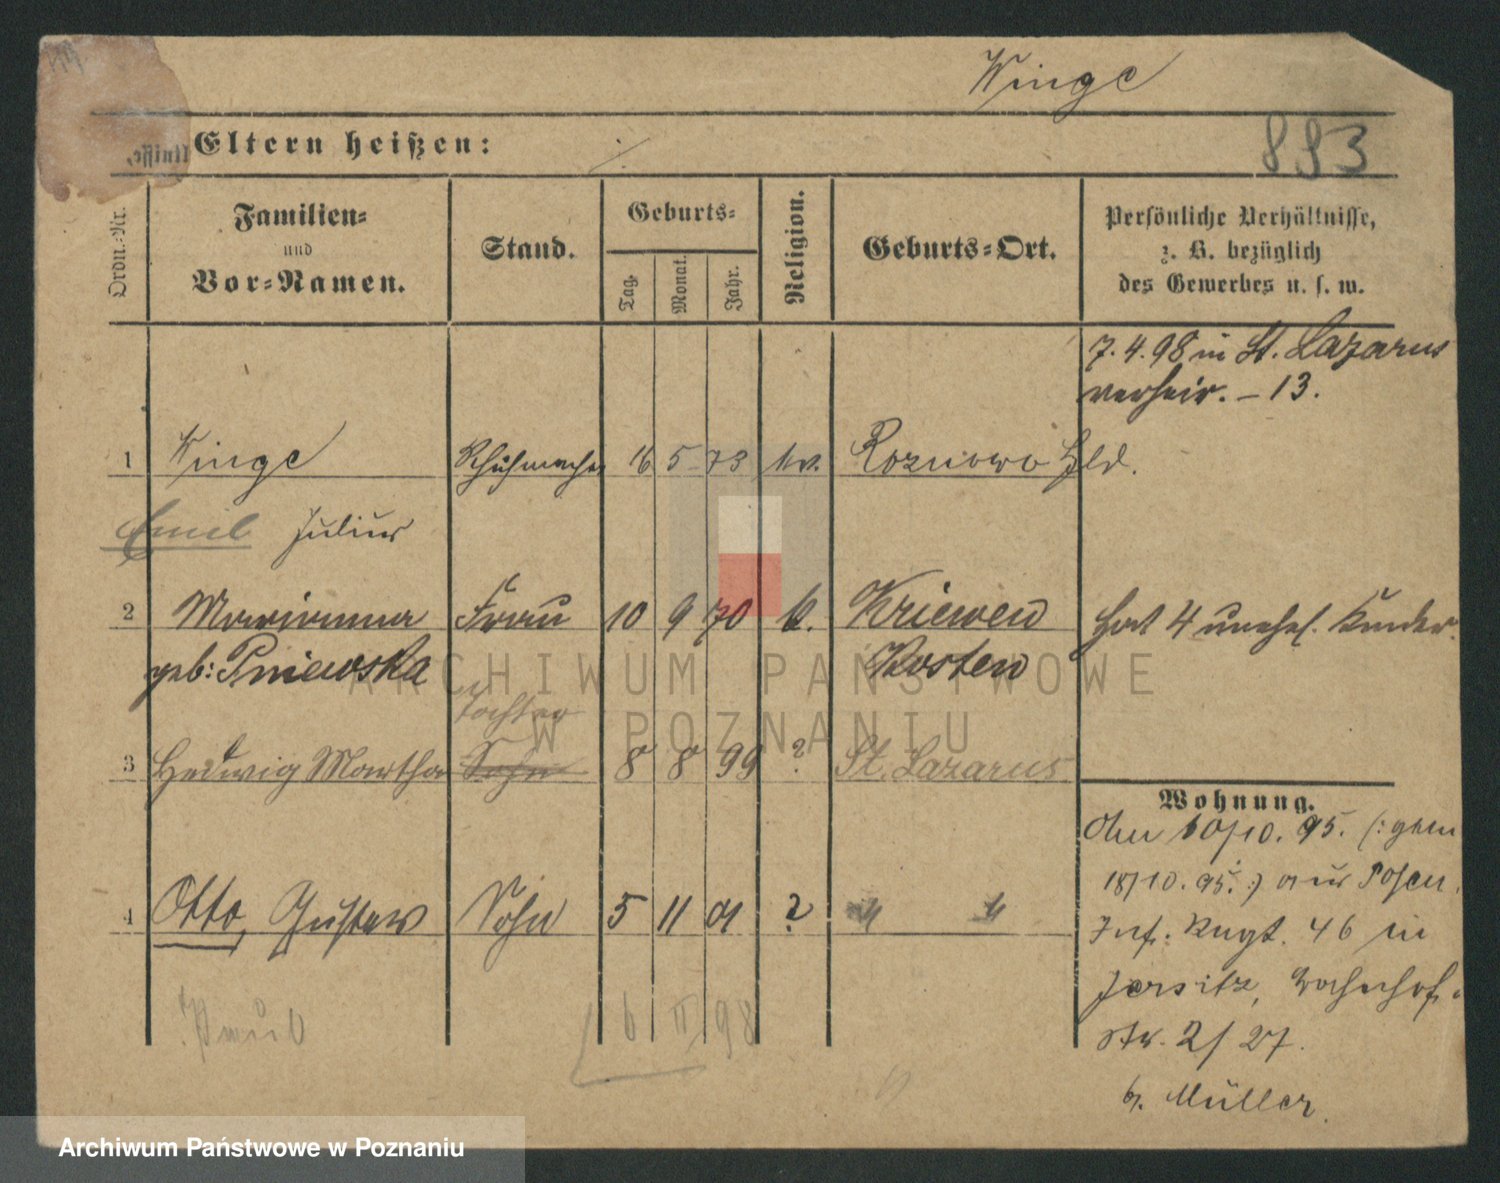 Winge
Eltern heißen:
893
Ordn.-Nr.
Familien-
und
Vor-Namen.
Stand.
Geburts-
Tag.
Monat.
Jahr.
Religion.
Geburts-Ort.
Persönliche Verhältnisse,
z. B. bezüglich
des Gewerbes u. s. w.
7.4.98 in St. Lazarus
verheir. – 13.
1 Winge Schuhmacher 16 5 73 ev. Roznowo Hld.
Emil Julius
2 Marianna Frau 10 9 70 k. Kriewen Hat 4 unehel. Kinder.
geb: Pniewska Kosten
Tochter
3 Hedwig Martha Sohn 8 8 99 ? St. Lazarus
Wohnung.
10/10. 95. (: gem
18/10. 95. :) aus Posen
4 Otto, Gustav Sohn 5 11 01 ? " "
Inf. Regt. 46 in
Jersitz, Bahnhof-
str. 2/27.
b. Müller.
6 II 98
ARCHIWUM PAŃSTWOWE
W POZNANIU
Archiwum Państwowe w Poznaniu